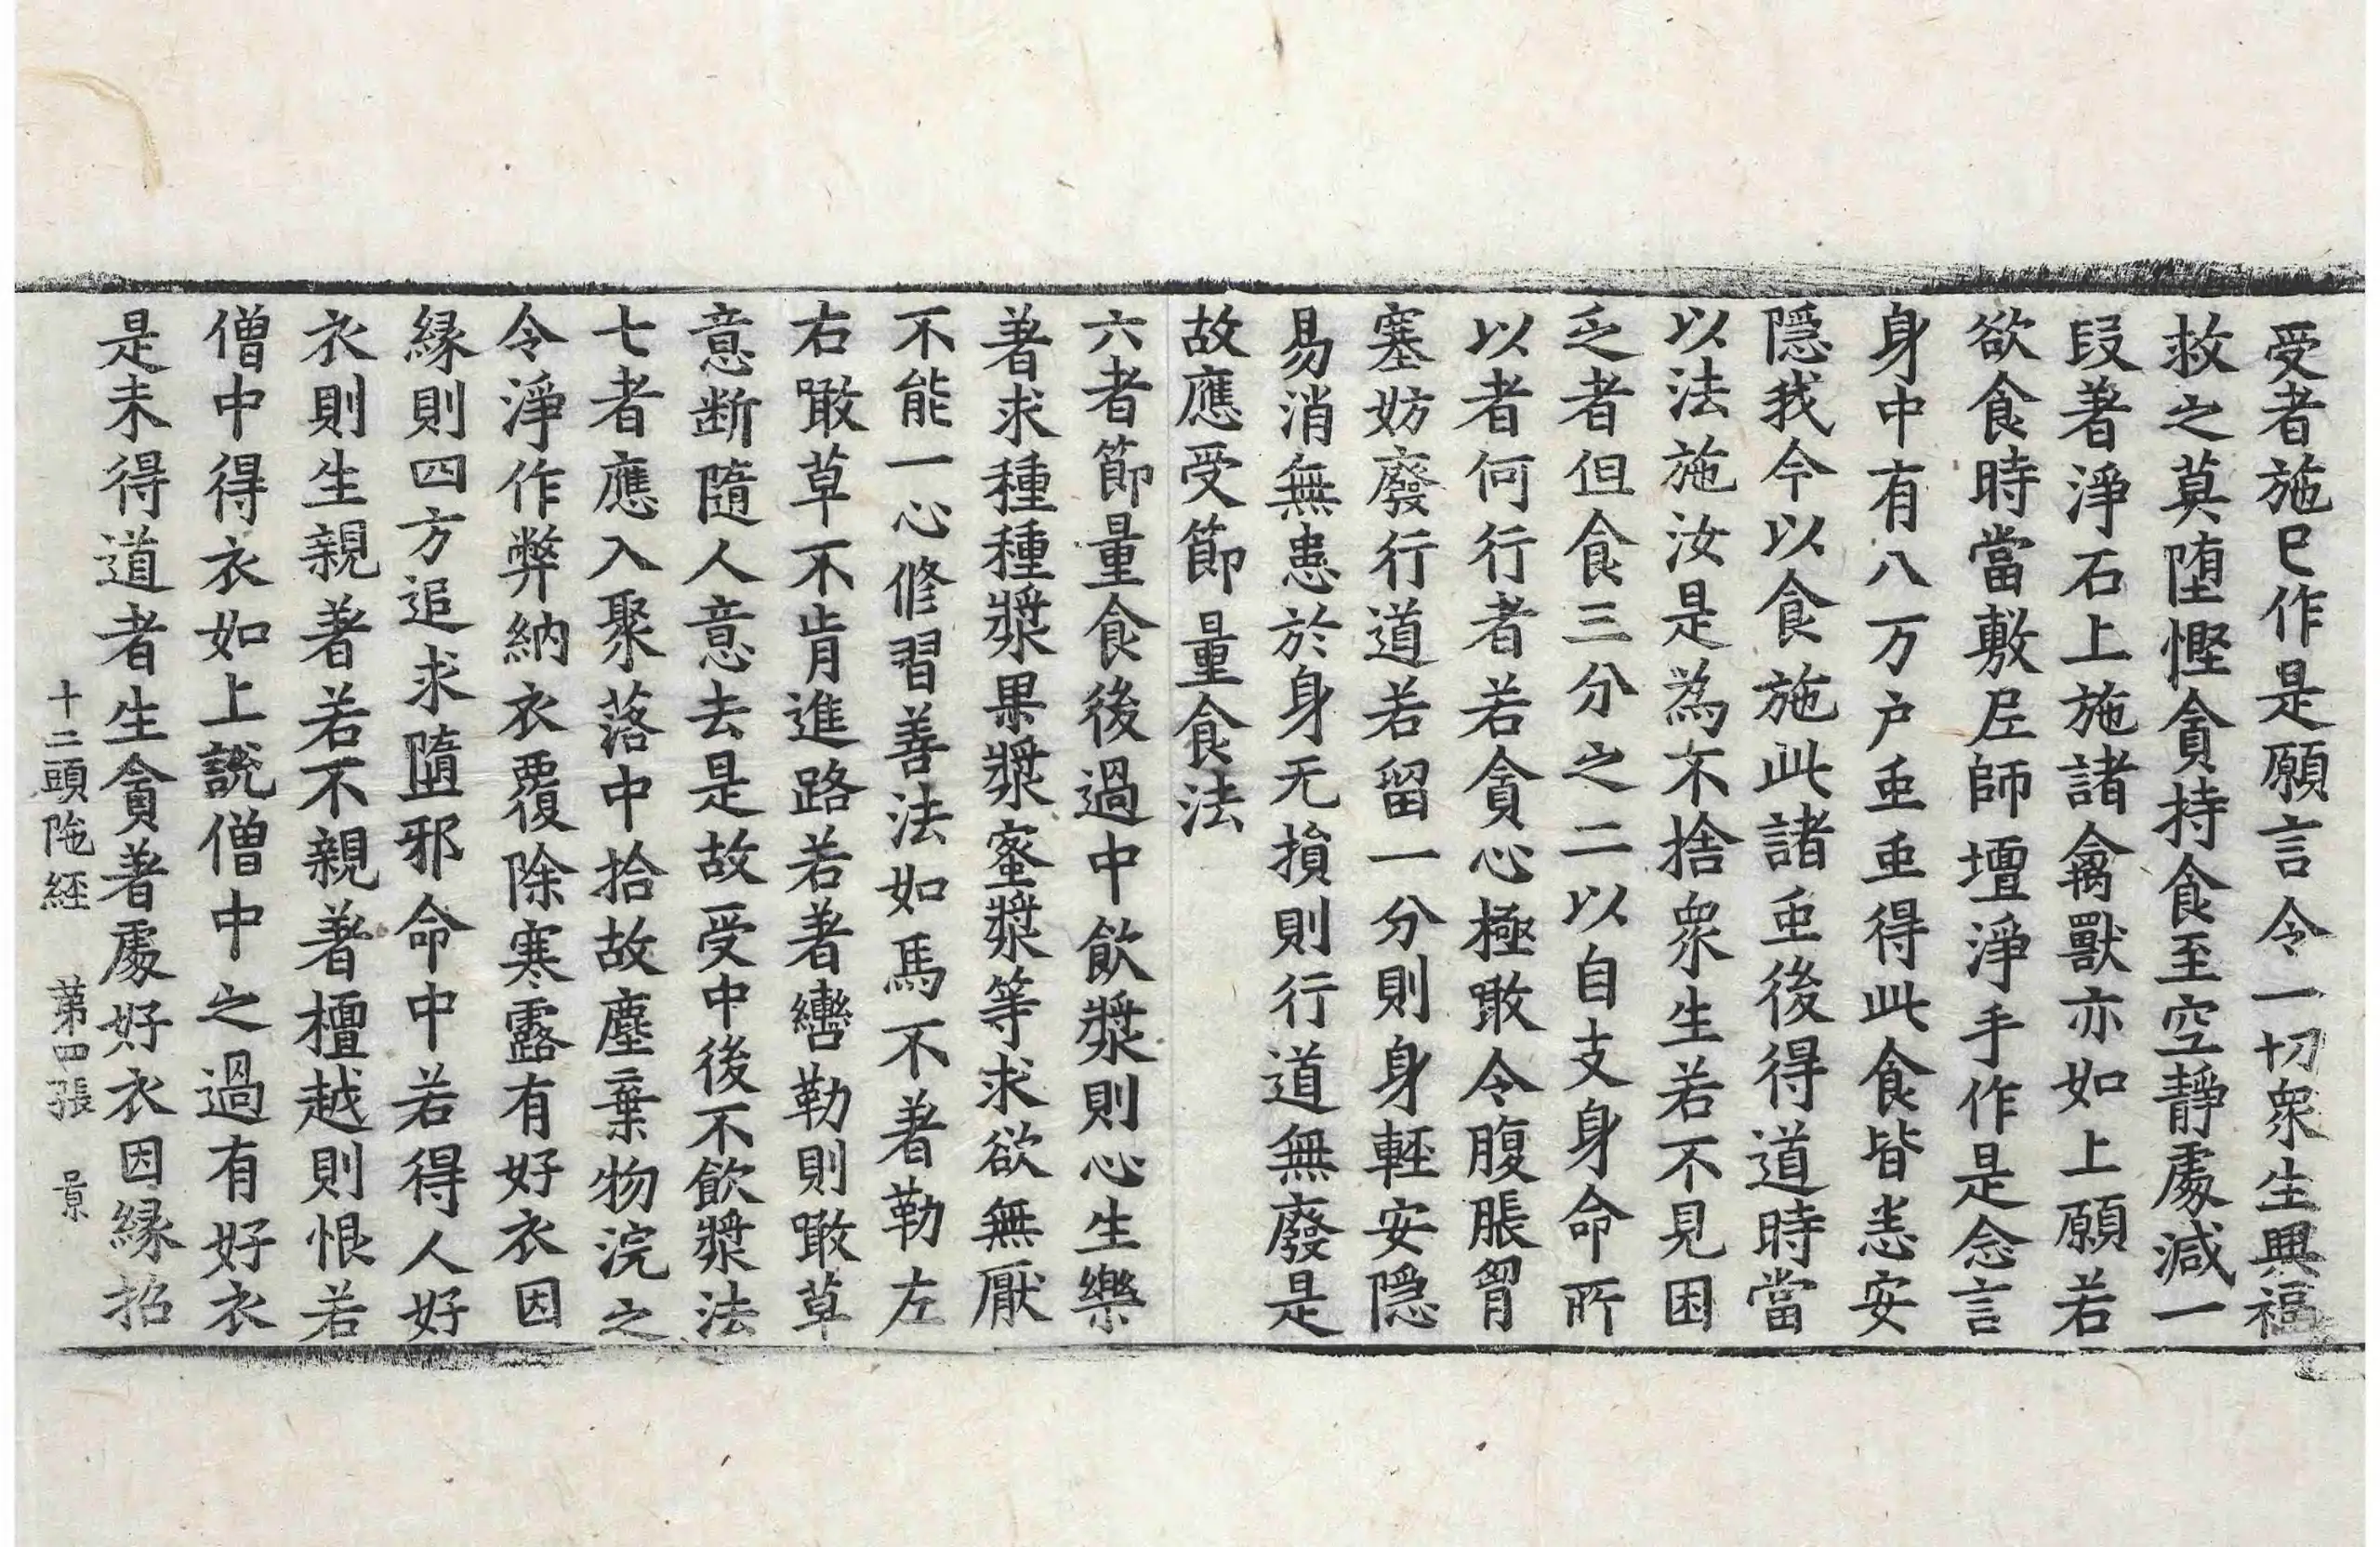 受者施已作是願言令一切衆生興福
救之莫堕慳貪持食至空靜處減一
段著淨石上施諸禽獸亦如上願若
欲食時當敷尼師壇淨手作是念言
身中有八万户䖝䖝得此食皆悉安
隱我今以食施此諸䖝後得道時當
以法施汝是為不捨衆生若不見困
乏者但食三分之二以自支身命所
以者何行者若貪心極噉令腹脹胷
塞妨廢行道若留一分則身輕安隠
易消無患於身无損則行道無廢是
故應受節量食法
六者節量食後過中飲漿則心生樂
著求種種漿果漿蜜漿等求欲無厭
不能一心修習善法如馬不著勒左
右噉草不肯進路若著轡勒則噉草
意断隨人意去是故受中後不飲漿法
七者應入聚落中拾故塵棄物浣之
令淨作弊納衣覆除寒露有好衣因
縁則四方追求隨邪命中若得人好
衣則生親著若不親著檀越則恨若
僧中得衣如上說僧中之過有好衣
是未得道者生貪著處好衣因縁招
十二頭陁経 第四張 景